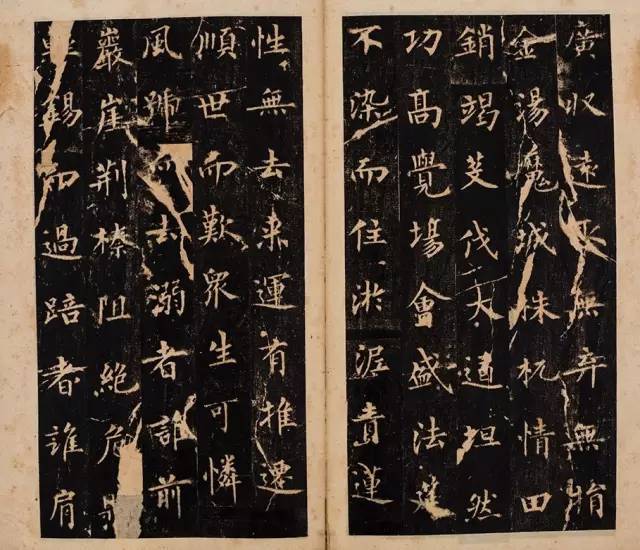 廣収遠取無弃無
金湯魔城株杌情田
銷竭芟伐大道坦然
功高覺場會盛法筵
不染而住淤渥青蓮
性無去来運有推遷
順世而歎衆生可憐
風去溺者誰前
巖崖荆榛阻絶危
錫而過踣者誰肩